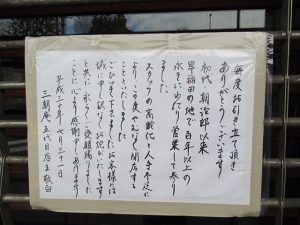 毎度お引き立て頂き
ありがとうございます
初代 朝治郎以来
早稲田の地で百年以上の
永きにわたり営業して参り
ました
スタッフの高齢化と人手不足に
より、この度やむなく閉店する
ことといたしました
ごひいき下さいましたお客様には
誠に申し訳なくお詫びいたします
と共に、永らくご愛顧賜りました
ことに心より感謝申しあげます
平成三十年 七月三十一日
三朝庵 五代目店主 敬白